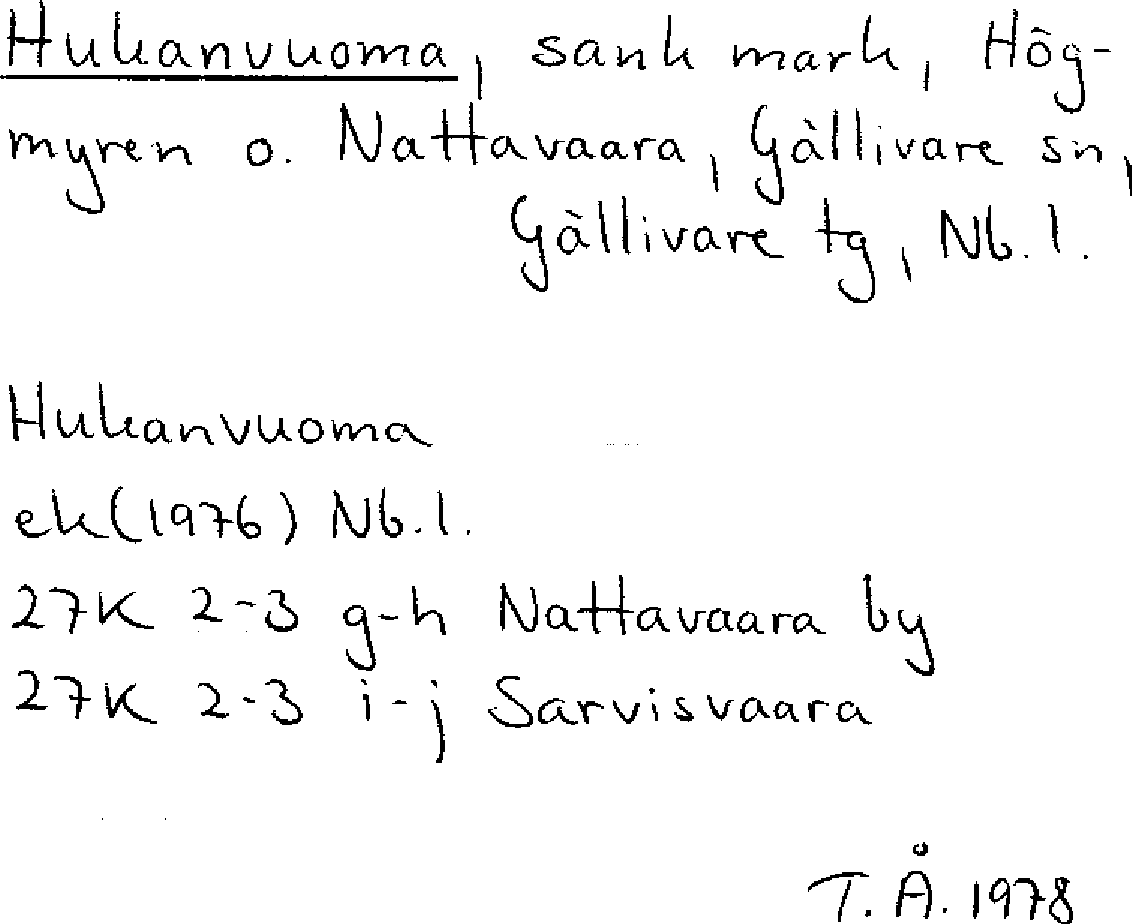 Hukanvuoma, sank mark, Hög-
myren o. Nattavaara, Gällivare sn,
Gällivare tg, Nb. l.
Hukanvuoma
ek (1976) Nb. l.
27K 2-3 g-h Nattavaara by
27K 2-3 i-j Sarvisvaara
T. Å. 1978